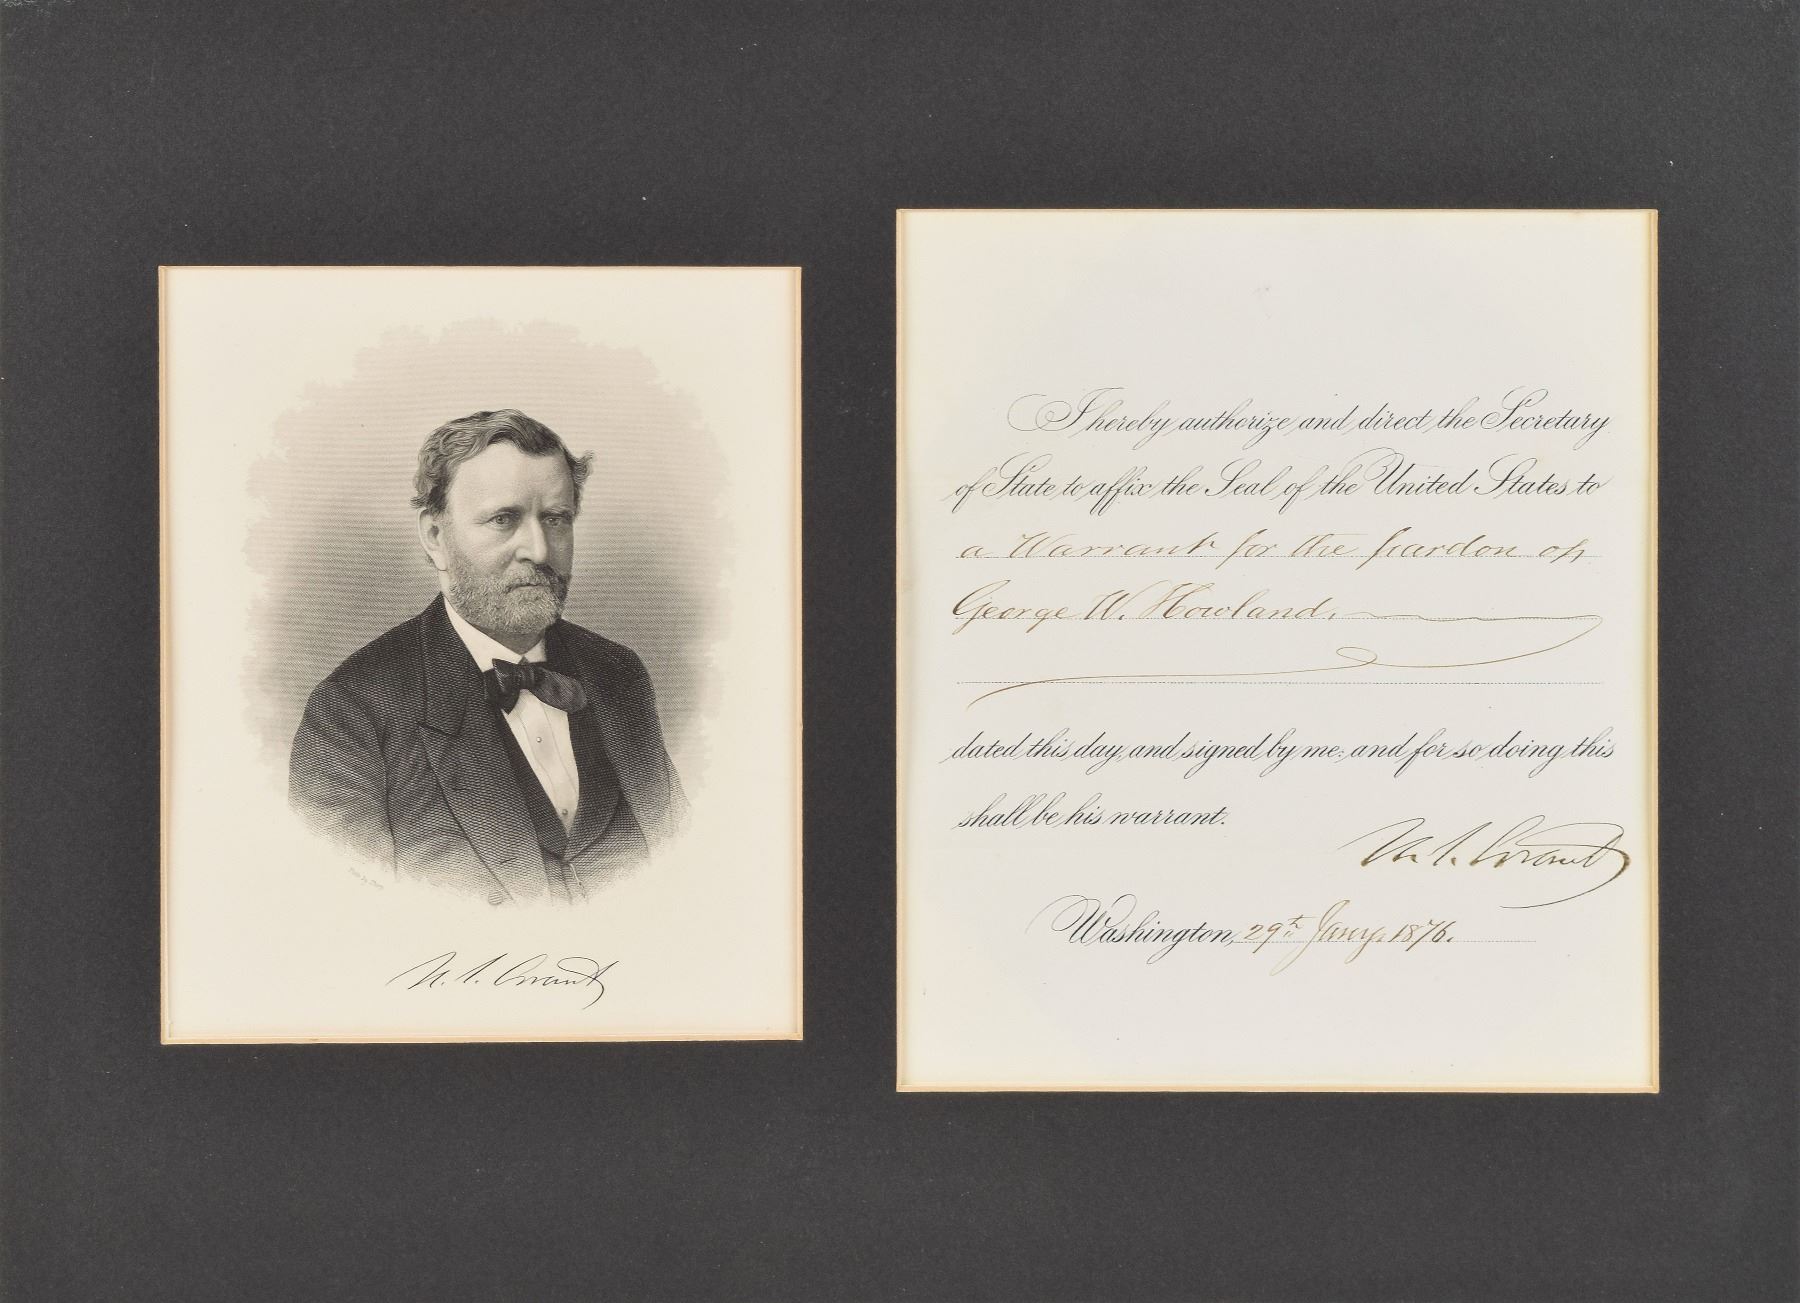 U. S. Grant
I hereby authorize and direct the Secretary
of State to affix the Seal of the United States to
a Warrant for the pardon of
George W. Howland.
dated this day, and signed by me: and for so doing this
shall be his warrant.
U. S. Grant
Washington, 29th Jany. 1876.